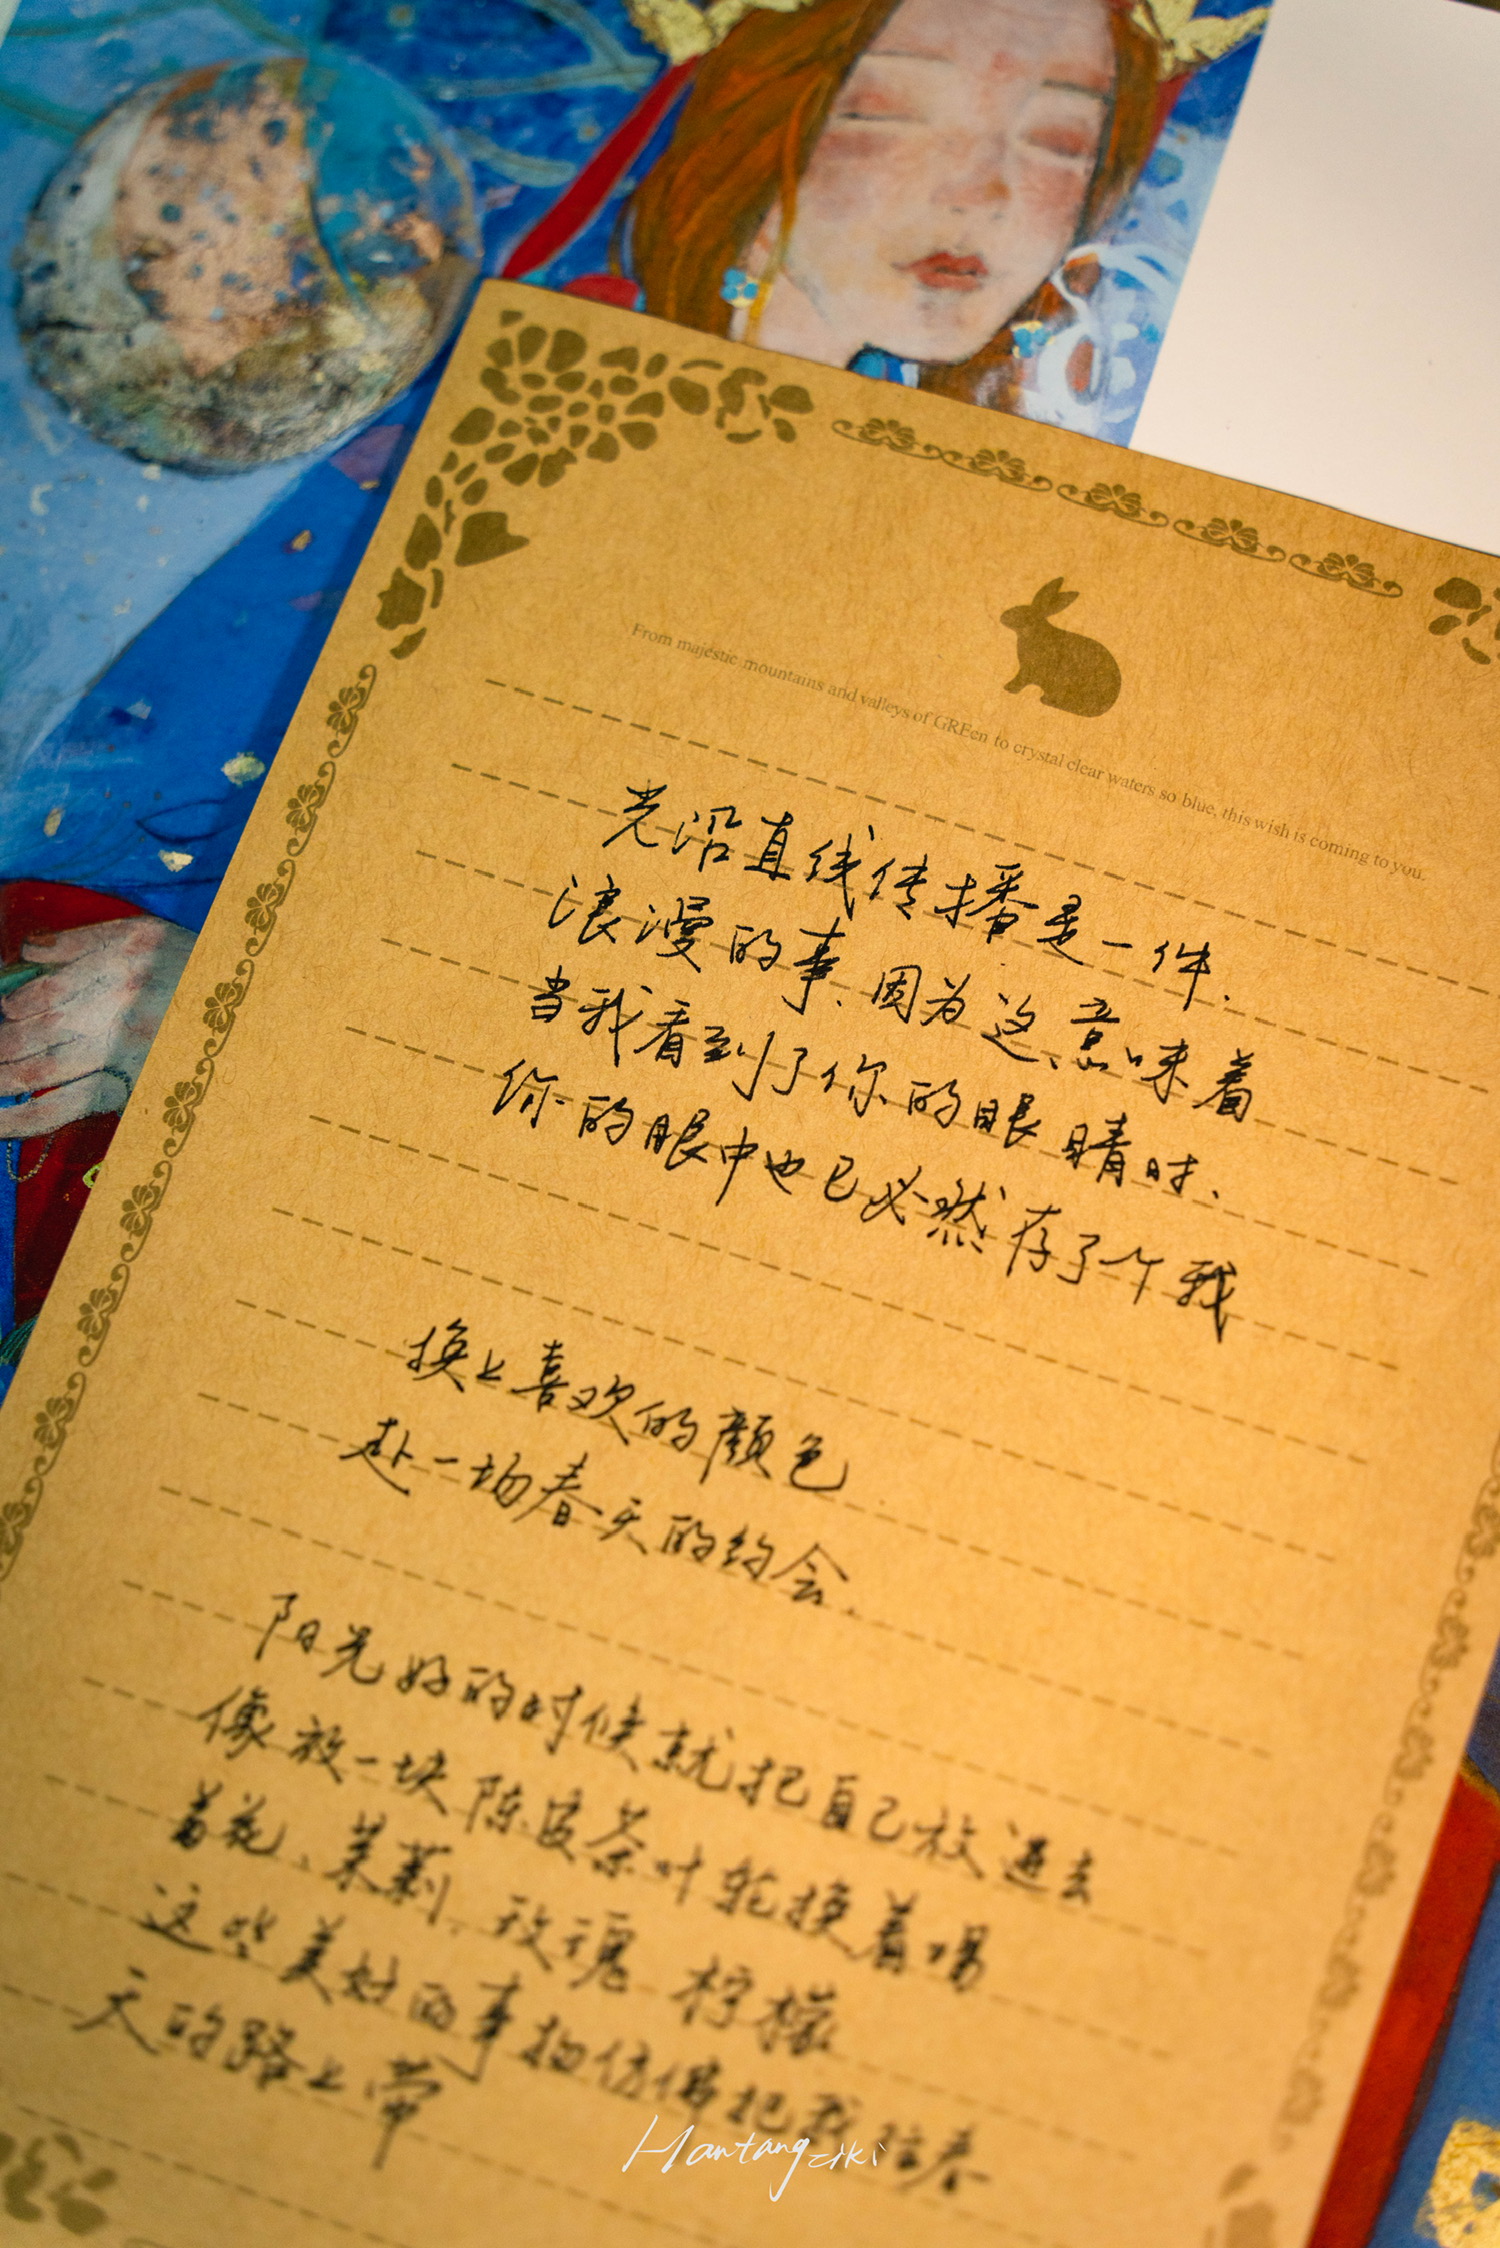 From majestic mountains and valleys of GREen to crystal clear waters so blue, this wish is coming to you.
光沿直线传播是一件
浪漫的事、因为这、意味着
当我看到了你的眼睛时、
你的眼中也已必然存了个我
换上喜欢的颜色
赴一场春天的约会.
阳光好的时候就把自己放进去
像放一块陈皮茶叶轮换着喝
菊花、茉莉、玫瑰 柠檬
这些美好的事物仿佛把我往春
天的路上带
Hantangziki